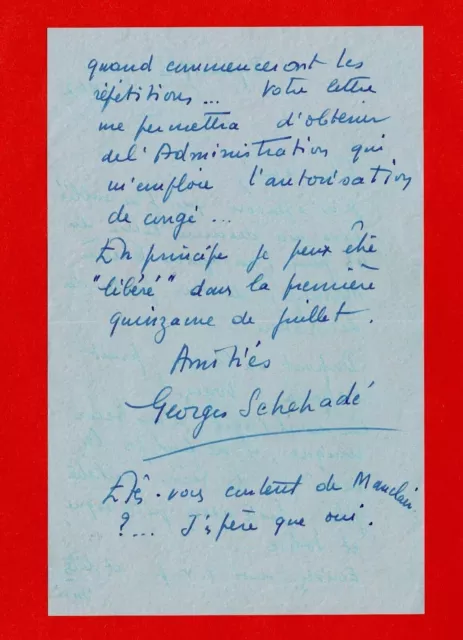 quand commenceront les
répétitions... Votre lettre
me permettra d'obtenir
de l'Administration qui
m'emploie l'autorisation
de congé...
En principe je peux être
"libéré" dans la première
quinzaine de juillet.
Amitiés
Georges Schehadé
Êtes-vous content de Mauclair
?... J'espère que oui.